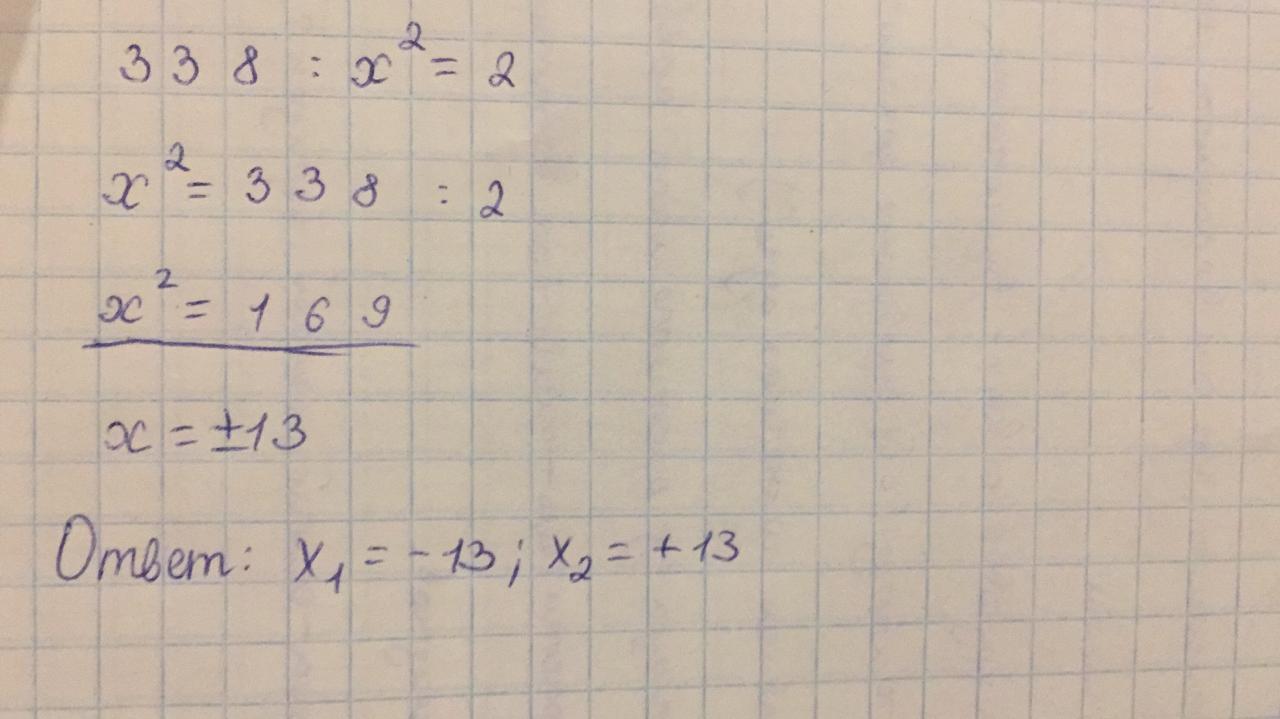 338 : x² = 2
x² = 338 : 2
x² = 169
x = ±13
Ответ: x₁ = -13; x₂ = +13